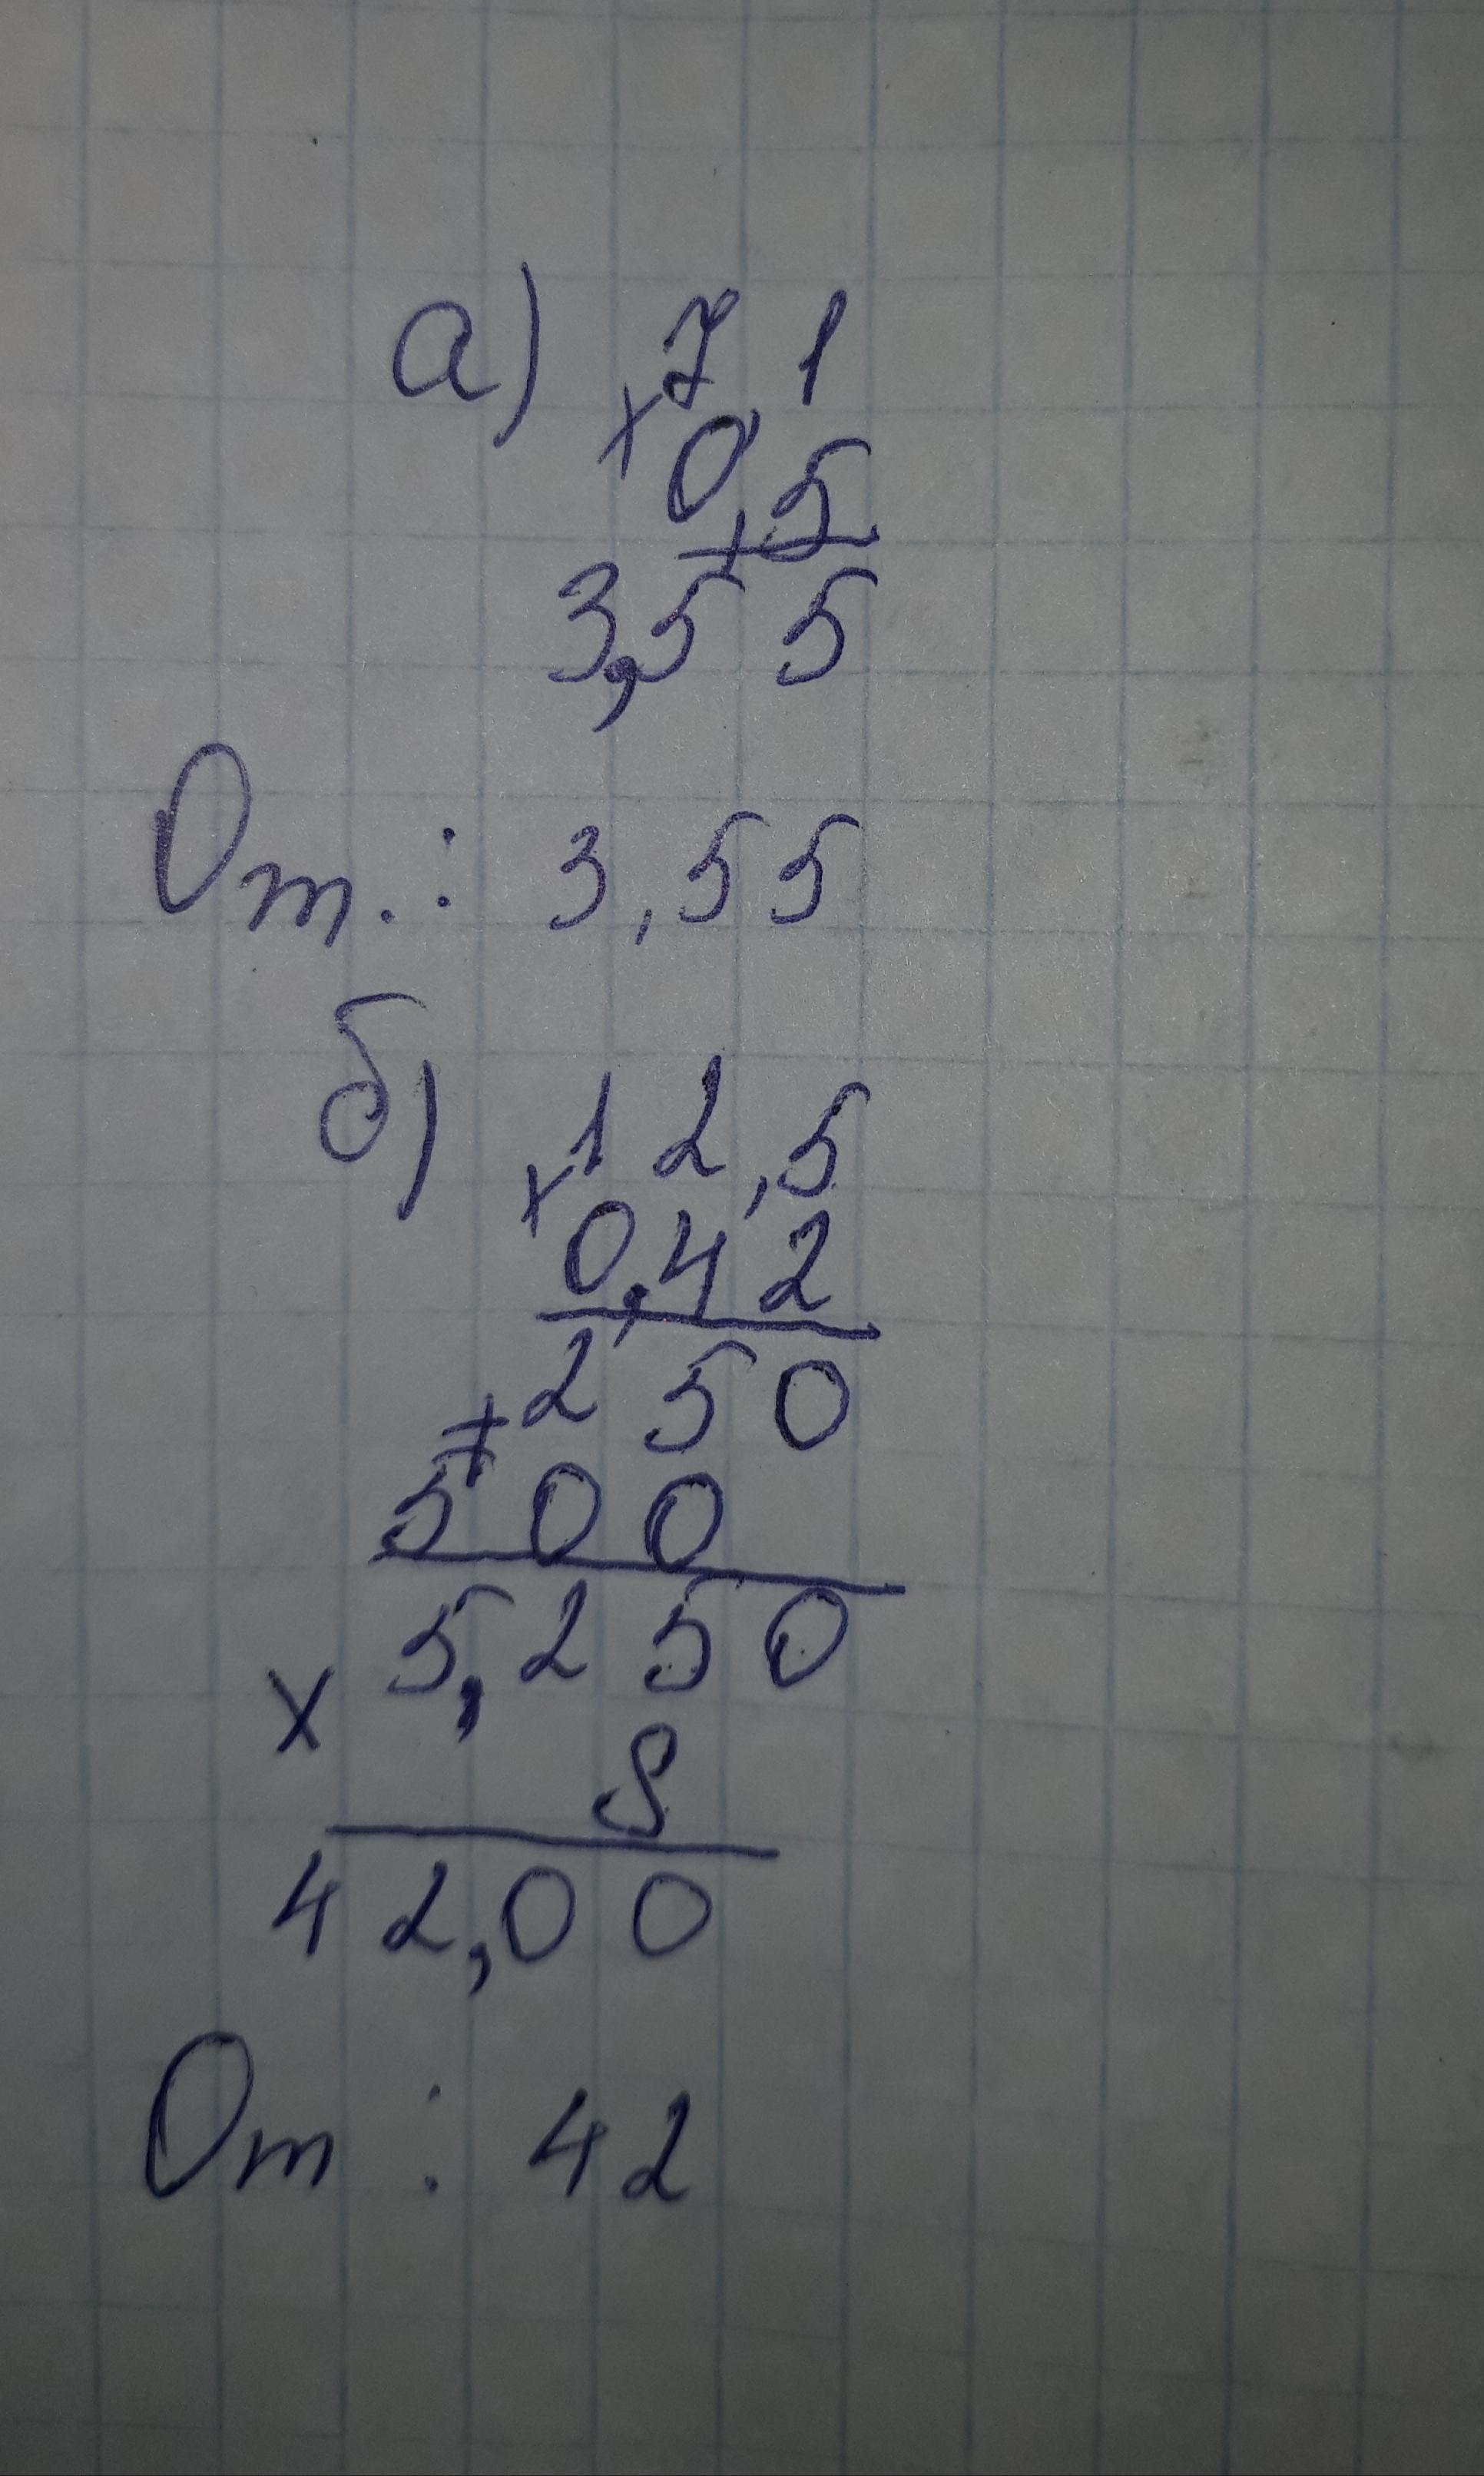 а) 7,1
× 0,5
3,55
От.: 3,55
б) 12,5
× 0,42
+ 250
500
5,250
× 8
42,00
От : 42